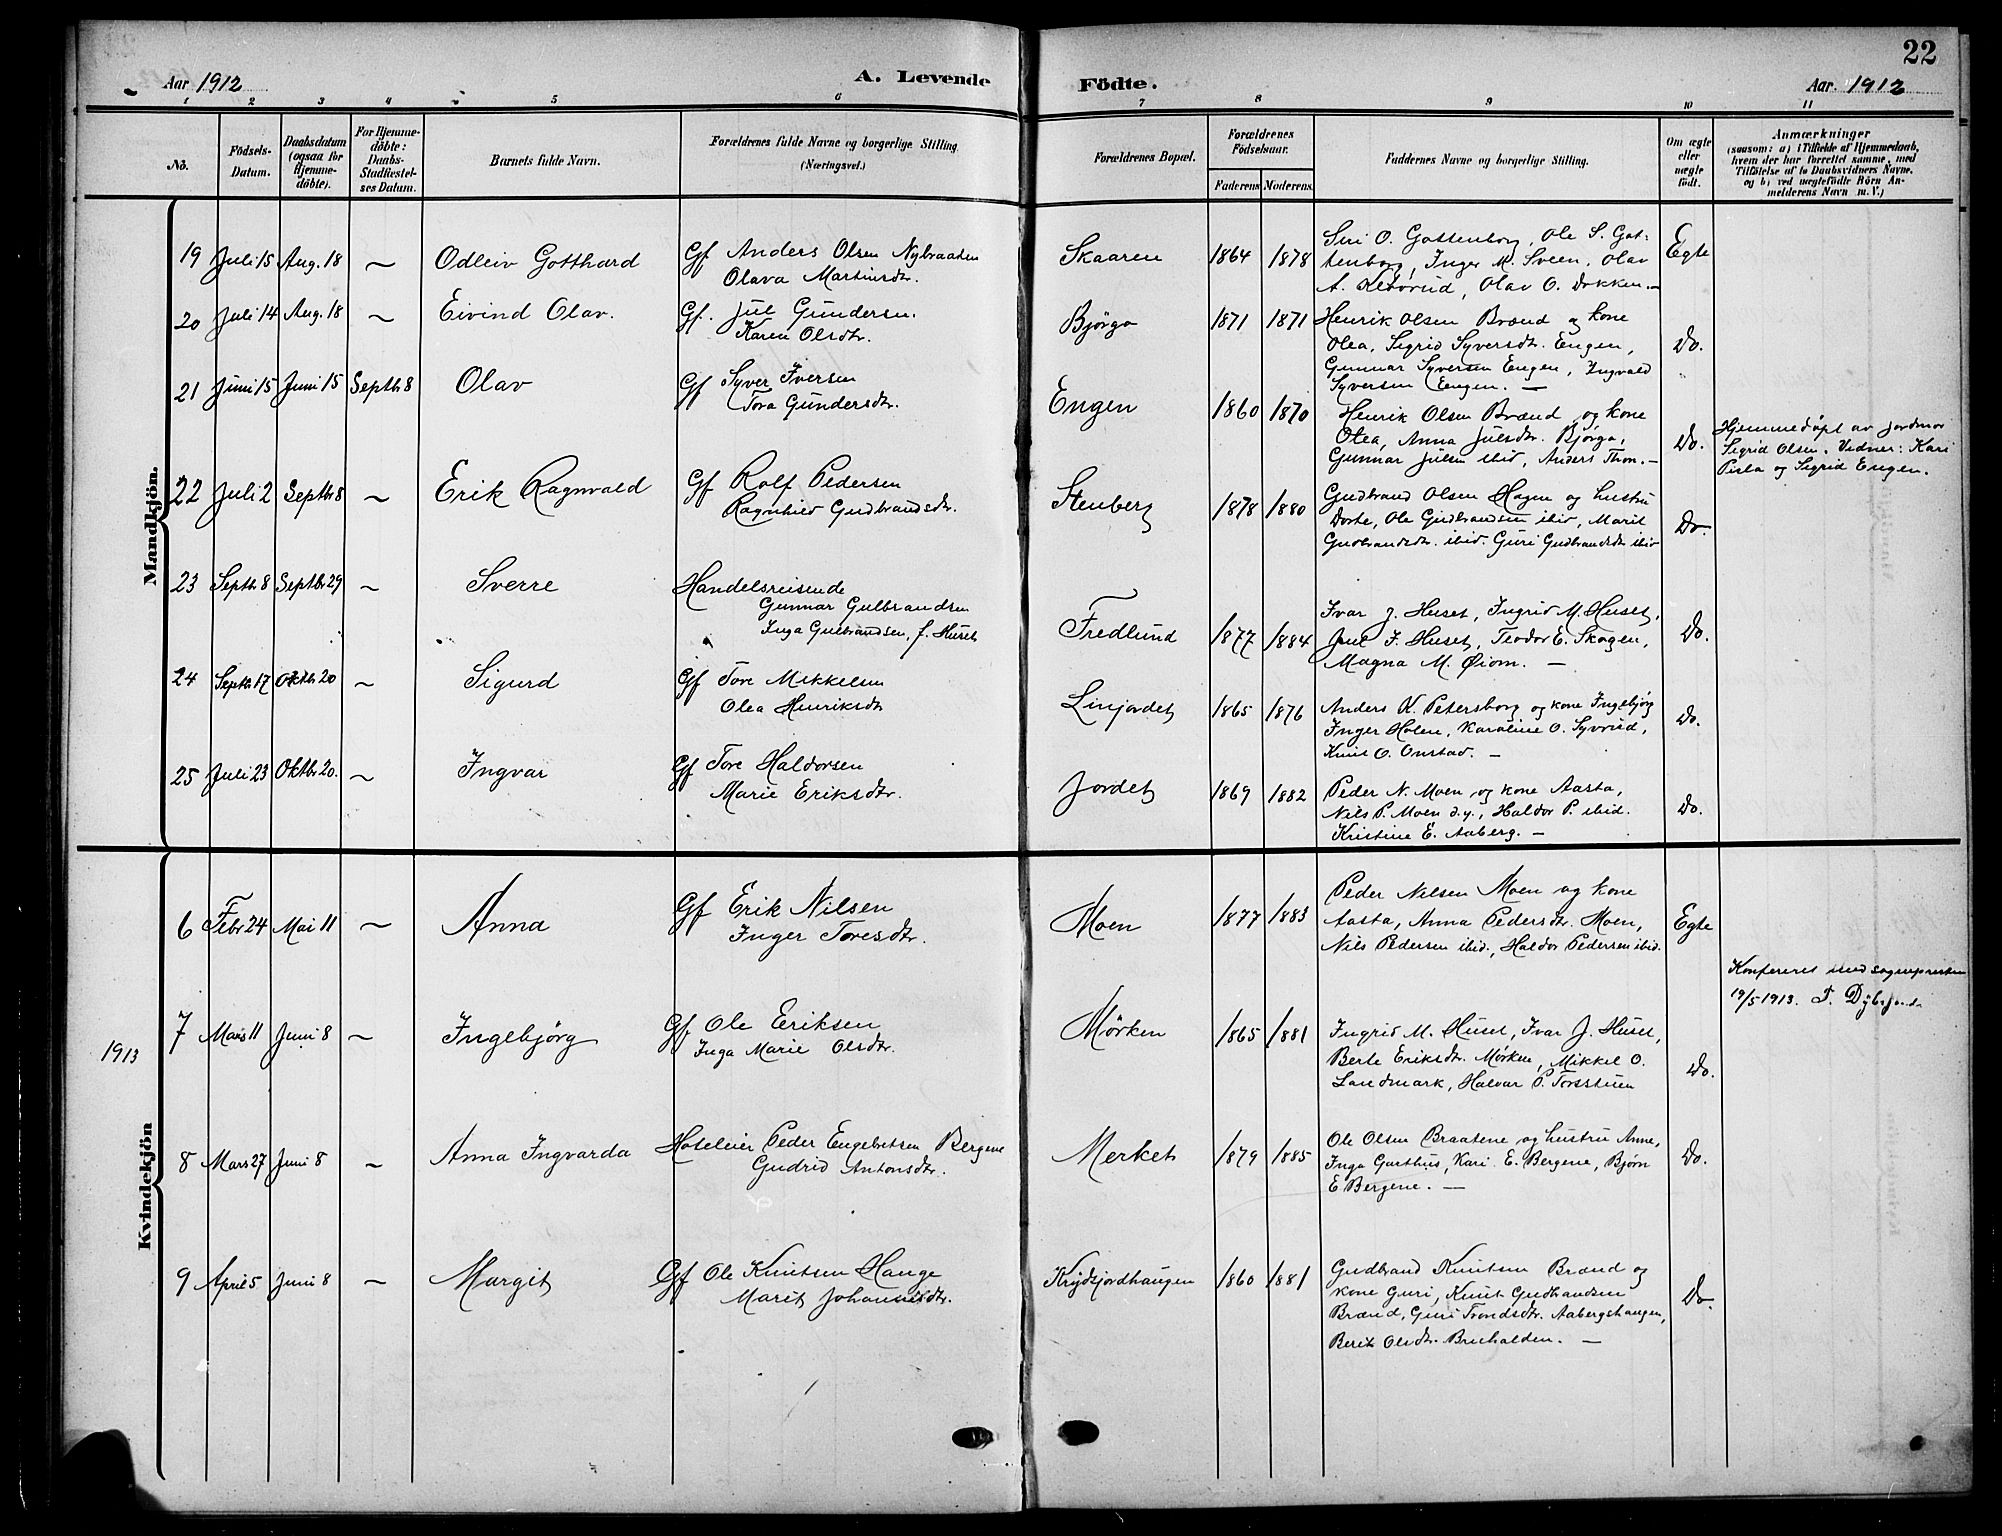 22
Aar 1912
A. Levende
Födte.
Aar 1912
1 2 3 4 5 6 7 8 9 10 11
No.
Födsels-
Datum.
Daabsdatum
(ogsaa for
Hjemme-
döbte).
For Hjemme-
döbte:
Daabs-
Stadfæstel-
ses Datum.
Barnets fulde Navn.
Forældrenes fulde Navne og borgerlige Stilling.
(Næringsvei.)
Forældrenes Bopæl.
Forældrenes
Födselsaar.
Faderens
Moderens
Faddernes Navne og borgerlige Stilling.
Om ægte
eller
uægte
födt.
Anmærkninger
(saasom: a) i Tilfælde af Hjemmedaab,
hvem der har forrettet samme, med
Tilföielse af to Daabsvidners Navne.
og b) ved uægtefödte Börn An-
melderens Navn m. V.)
Mandkjön.
19 Juli 15 Aug. 18 ~ Odleiv Gotthard Gf Anders Olsen Nybraaten
Olava Martinsdtr.
Skaaren 1864 1878 Siri O. Gottenborg, Ole S. Got-
tenborg, Inger M. Sveen, Olav
A. Klevrud, Olav O. Dokken. —
Egte
20 Juli 14 Aug. 18 ~ Eivind Olav. Gf. Jul Gundersen.
Karen Olsdtr.
Bjørgo 1871 1871 Henrik Olsen Brænd og kone
Olea, Sigrid Syversdtr. Engen,
Gunnar Syversen Engen, Ingvald
Syversen Engen. —
Do.
21 Juni 15 Juni 15 Septbr 8 Olav Gf Syver Iversen
Tora Gundersdtr.
Engen 1860 1870 Henrik Olsen Brænd og kone
Olea, Anna Julsdtr. Bjørgo,
Gunnar Julsen ibid, Anders Thon. —
Do.
Hjemmedöpt av jordmor
Sigrid Olsen. Vidner: Kari
Pisla og Sigrid Engen.
22 Juli 2 Septbr 8 ~ Erik Ragnvald Gf Rolf Pedersen
Ragnhild Gudbrandsdtr.
Stenberg 1878 1880 Gudbrand Olsen Hagen og hustru
Dorte, Ole Gudbrandsen ibid, Marit
Gudbrandsdtr. ibid. Guri Gudbrandsdtr ibid
Do.
23 Septbr 8 Septbr 29 ~ Sverre Handelsreisende
Gunnar Gulbrandsen
Inga Gulbrandsen, f. Huset
Fredlund 1877 1884 Ivar J. Huset, Ingrid M. Huset,
Juul I. Huset, Teodor E. Skogen,
Magna M. Øiom. —
Do.
24 Septbr 17 Oktbr 20 ~ Sigurd Gf Tore Mikkelsen
Olea Henriksdtr
Linjordet 1865 1876 Anders K. Petersborg og kone Ingebjørg
Inger Holen, Karoline O. Syvrud,
Knut O. Onstad. —
Do.
25 Juli 23 Oktbr 20. ~ Ingvar Gf Tore Haldorsen
Marie Eriksdtr.
Jordet 1869 1882 Peder N. Moen og kone Aasta,
Nils P. Moen d.y., Haldor P. ibid.
Kristine E. Aaberg. —
Do.
Kvindekjön
1913
6 Febr 24 Mai 11 ~ Anna Gf Erik Nilsen
Inger Toresdtr.
Moen 1877 1883 Peder Nilsen Moen og kone
Aasta, Anna Pedersdtr. Moen,
Nils Pedersen ibid., Haldor Pedersen ibid.
Egte
Konfereret med sogneprestens
19/5 1913. T.
7 Mars 11 Juni 8 ~ Ingebjörg Gf Ole Eriksen
Inga Marie Olsdtr.
Mörken 1865 1881 Ingrid M. Huset, Ivar J. Huset,
Berte Eriksdtr. Mørken, Mikkel O.
Landmark, Halvar P. Torsstuen
Do.
8 Mars 27 Juni 8 ~ Anna Ingvarda Hoteleier Peder Engebretsen Bergene
Gudrid Antonsdtr.
Merket 1879 1885 Ole Olsen Braatene og hustru Anne,
Inga Garthus, Kari E. Bergene, Bjørn
E Bergene. —
Do.
9 April 5 Juni 8 ~ Margit Gf Ole Knutsen Hauge
Marit Johannesdtr.
Krydsjordhaugen 1860 1881 Gudbrand Knutsen Brænd og
kone Guri, Knut Gudbandsen
Brænd, Guri Trondsdtr. Aabergshaugen,
Berit Olsdtr. Bruhalden. —
Do.